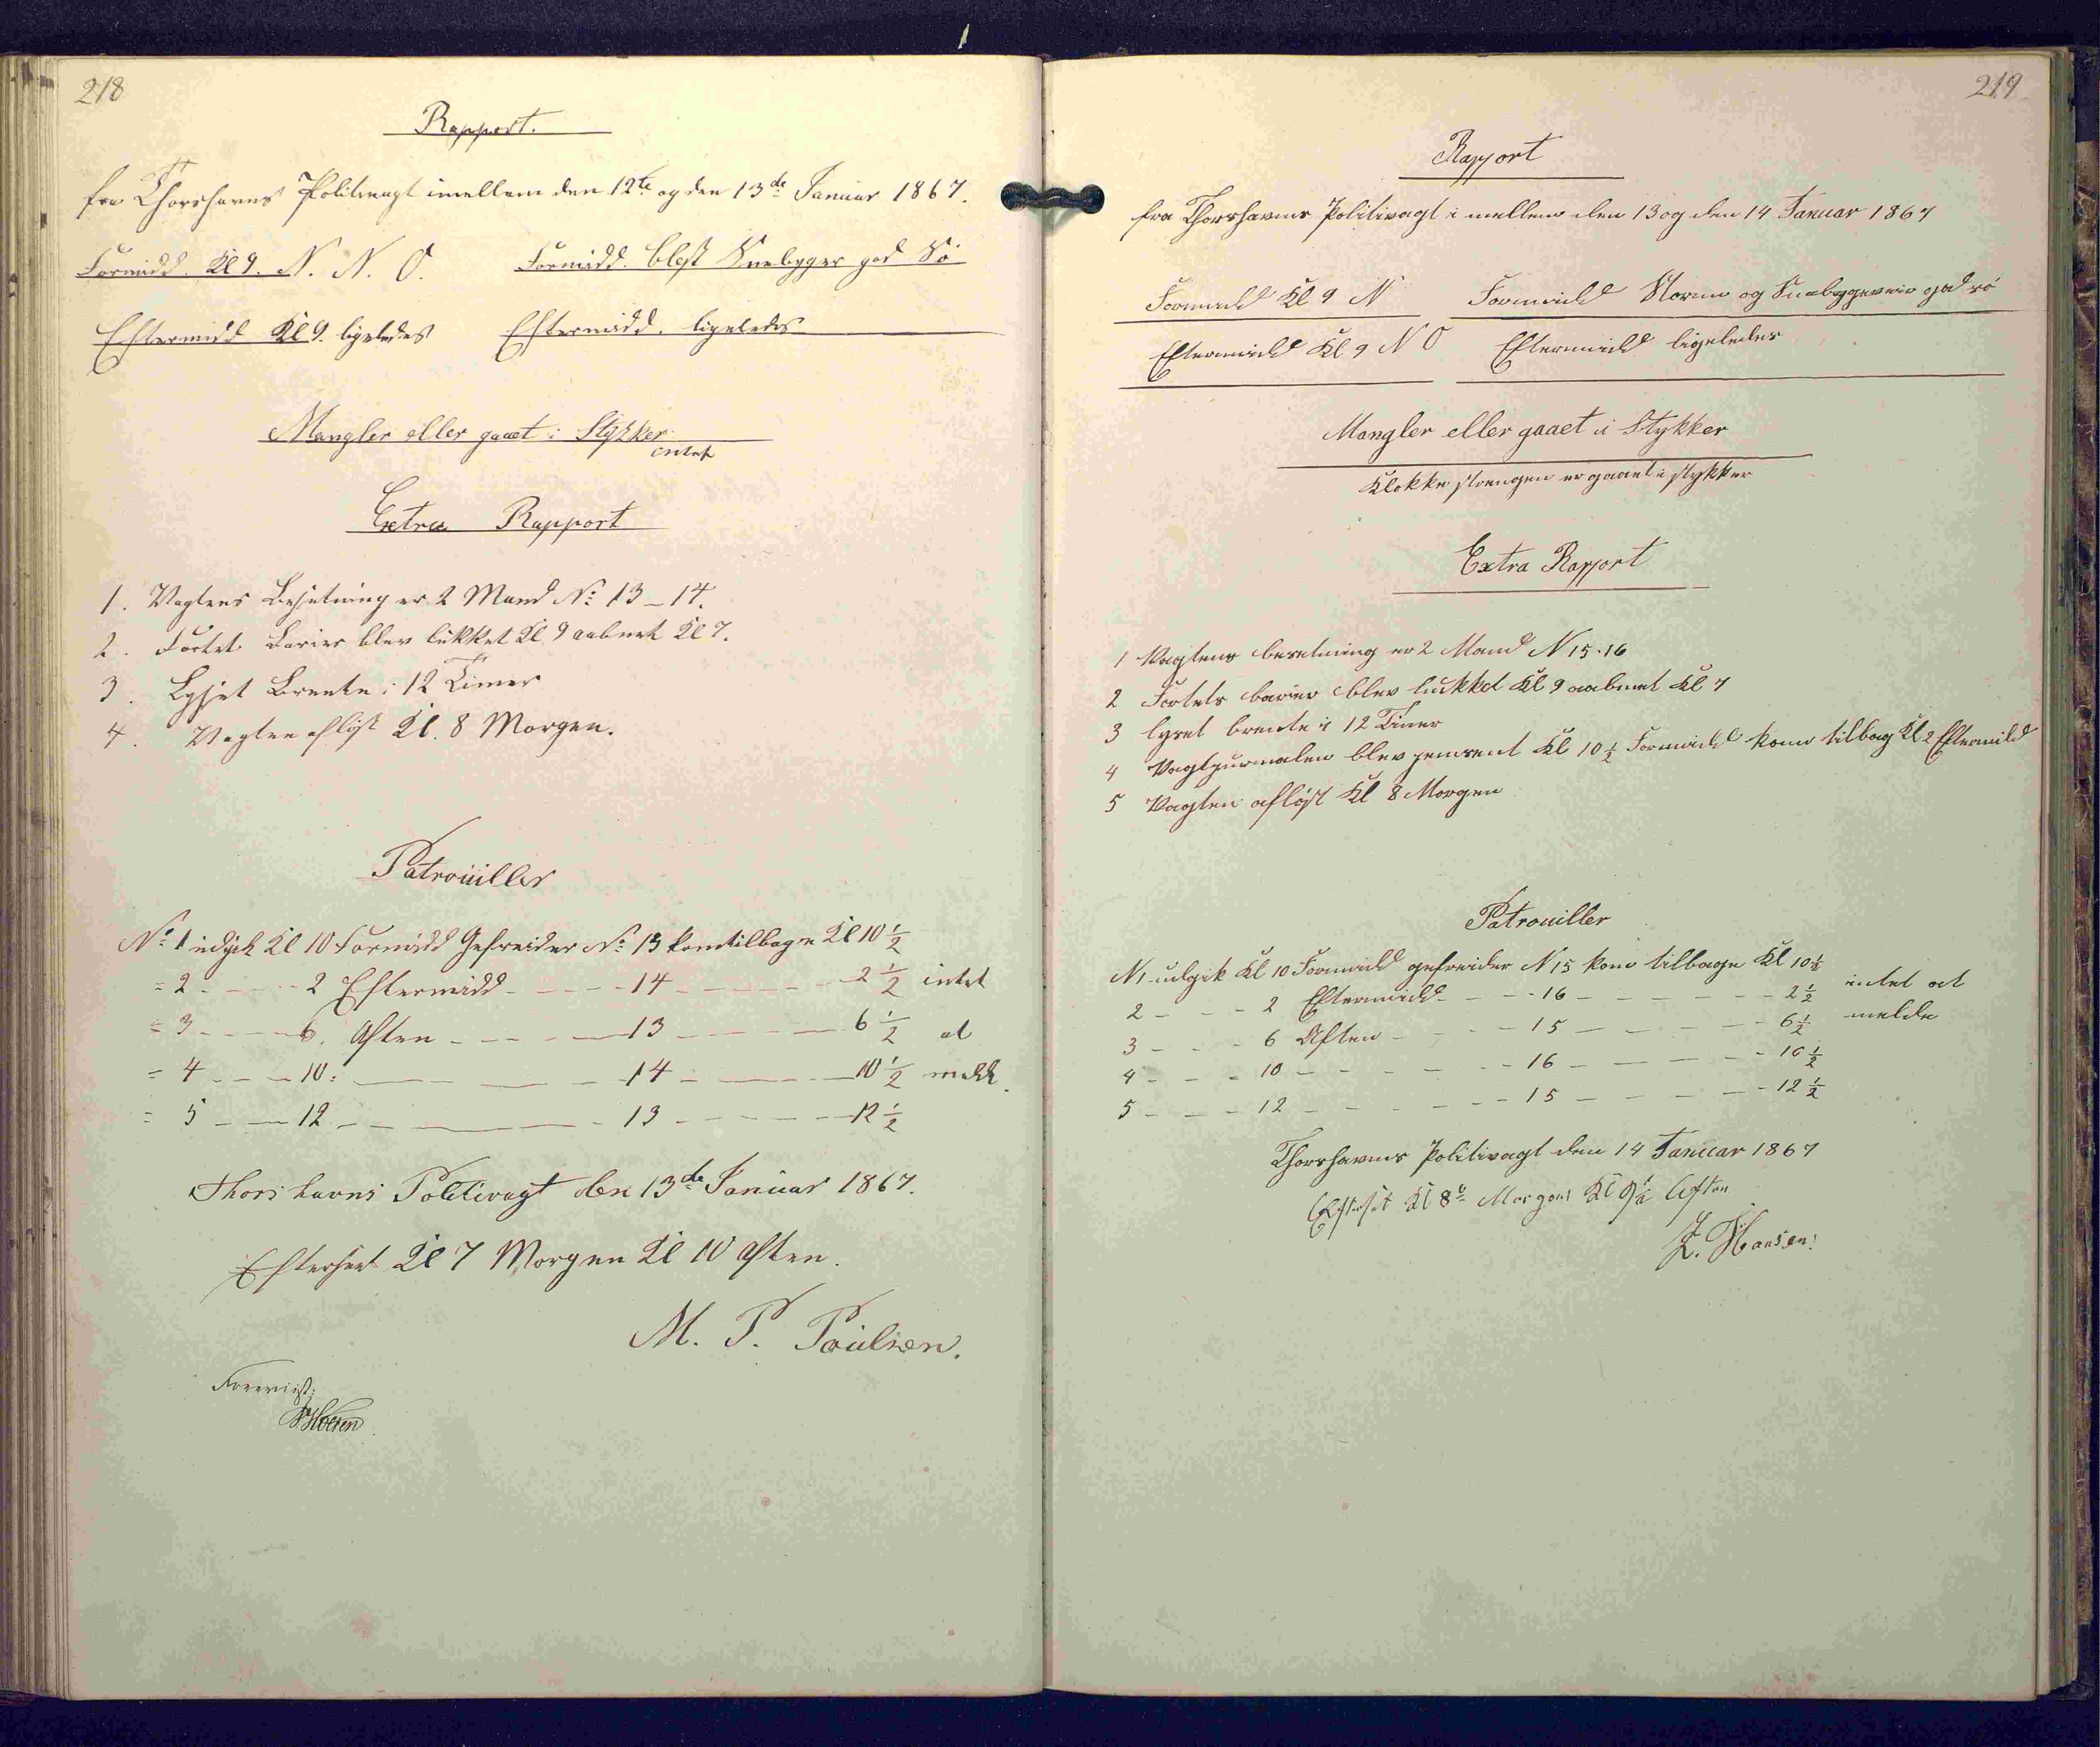 218
Rapport.
fra Thorshavns Politivagt imellem den 12te og den 13de Januar 1867.
Formidd. Kl 9. N. N. O. Formidd. blæst Sneebyger god Sö
Eftermidd Kl 9. ligeledes Eftermidd. ligeledes
Mangler eller gaaet i Stykker
intet
Extra Rapport
1. Vagtens Besetning er 2 Mand No 13-14.
2. Fortet Barier blev lukket Kl 9 aabnet Kl 7.
3. Lyset Brente i 12 Timer
4. Vagten aflöst Kl. 8 Morgen.
Patrouiller
No 1 udgik Kl 10 Formidd Gefreider No 13 kom tilbage Kl 10 1/2
= 2 - - - 2 Eftermidd - - - 14 - - - 2 1/2 intet
= 3 - - - 6. Aften - - - 13 - - - 6 1/2 at
= 4 - - - 10 - - - 14 - - - 10 1/2 meld.
= 5 - - - 12 - - - 13 - - - 12 1/2
Thorshavns Politivagt den 13de Januar 1867.
Efterseet Kl 7 Morgen Kl 10 Aften.
M. P. Poulsen.
Foreviist:
219
Rapport
fra Thorshavns Politivagt i mellem den 13 og den 14 Januar 1867
Formidd Kl 9 N Formidd Storm og Sneebyggeveir god sö
Eftermidd Kl 9 N O Eftermidd ligeledes
Mangler eller gaaet i Stykker
Klokke strengen er gaaet i stykker
Extra Rapport
1 Vagtens besetning er 2 Mand N 15-16
2 Fortets barier blev lukket Kl 9 aabnet Kl 7
3 lyset brente i 12 Timer
4 Vagtjurnalen blev jemsent Kl 10 1/2 Formidd kom tilbag Kl 2 Eftermidd
5 Vagten aflöst Kl 8 Morgen
Patrouiller
N 1 udgik Kl 10 Formidd gefreider N 15 kom tilbage Kl 10 1/2
2 - - - 2 Eftermidd - - - 16 - - - 2 1/2 intet at
3 - - - 6 Aften - - - 15 - - - 6 1/2 melde
4 - - - 10 - - - 16 - - - 10 1/2
5 - - - 12 - - - 15 - - - 12 1/2
Thorshavns Politivagt den 14 Januar 1867
Efterset Kl 8 Morgens Kl 9 1/2 Aften
Z. Hansen.